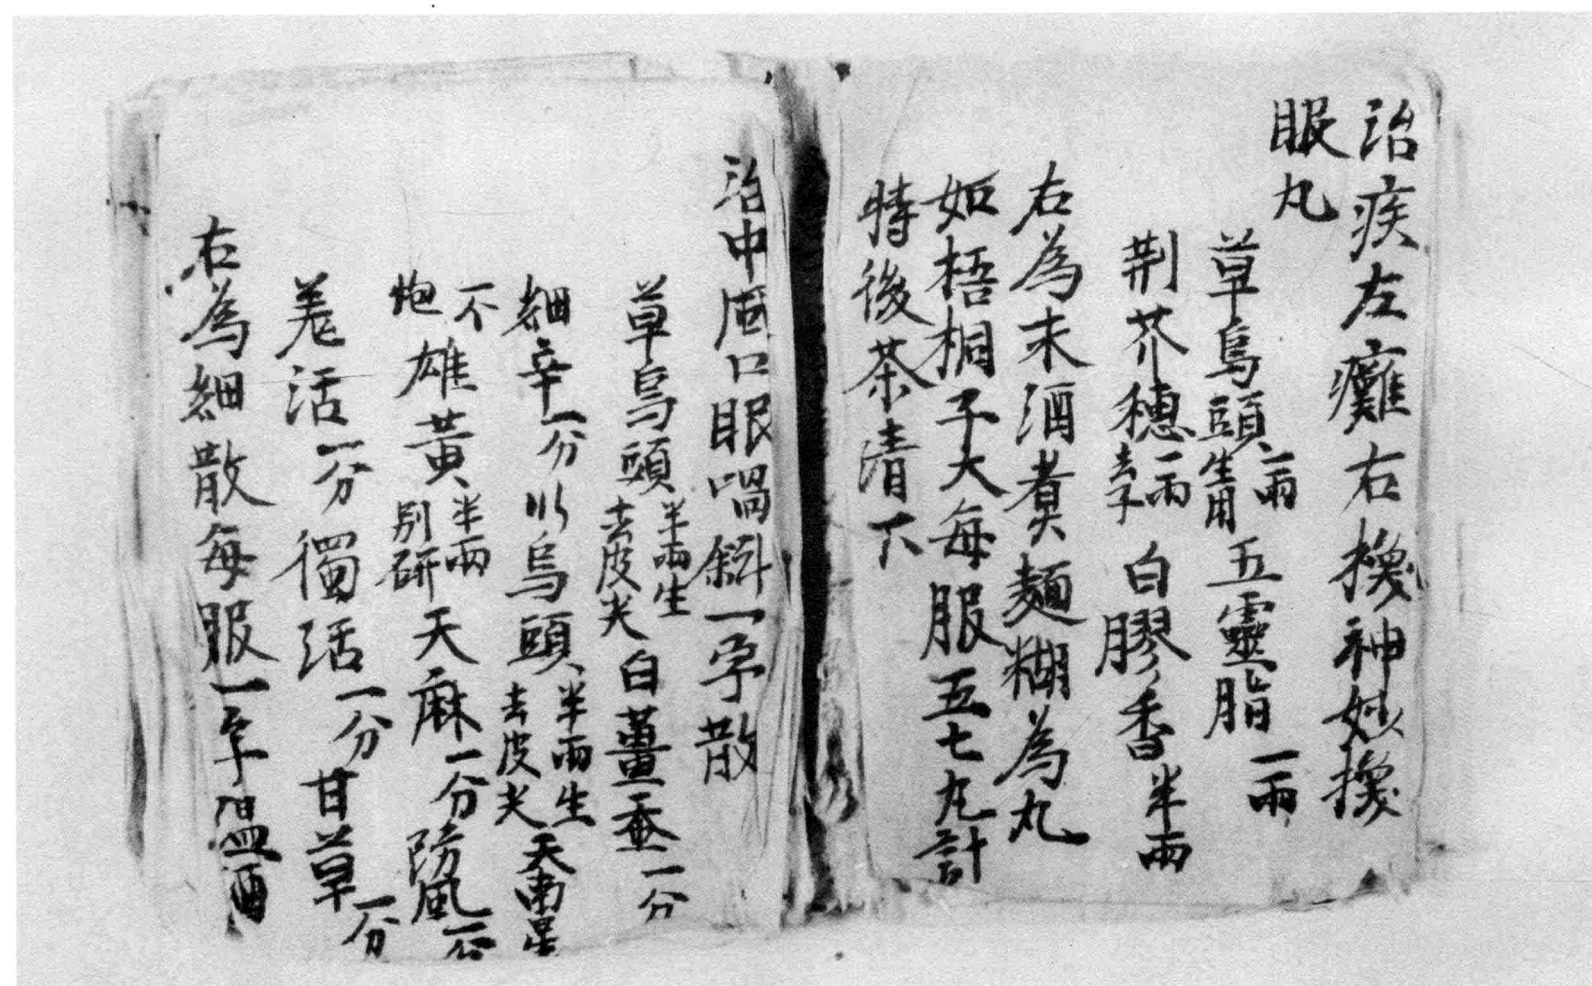 治疾左癱右㨫神妙㨫
眼丸
草烏頭一兩生用五靈脂一兩
荆芥穗一兩去子白膠香半兩
右為末酒煮麺糊為丸
如梧桐子大每服五七丸計
時後茶清下
治中風口眼喎斜一字散
草烏頭半兩生去皮尖白薑蚕一分
細辛一分川烏頭半兩生去皮尖天南星
不炮雄黃半兩别研天麻一分防風一分
羌活一分獨活一分甘草一分
右為細散每服一字温酒